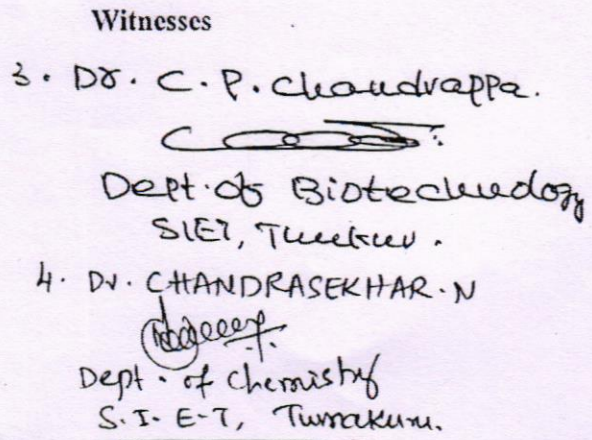 Witnesses
3. Dr. C. P. Chandrappa.
Dept. of Biotechnology
SIET, Tumkur.
4. Dr. CHANDRASEKHAR. N
Dept. of Chemistry
S. I. E. T, Tumakuru.